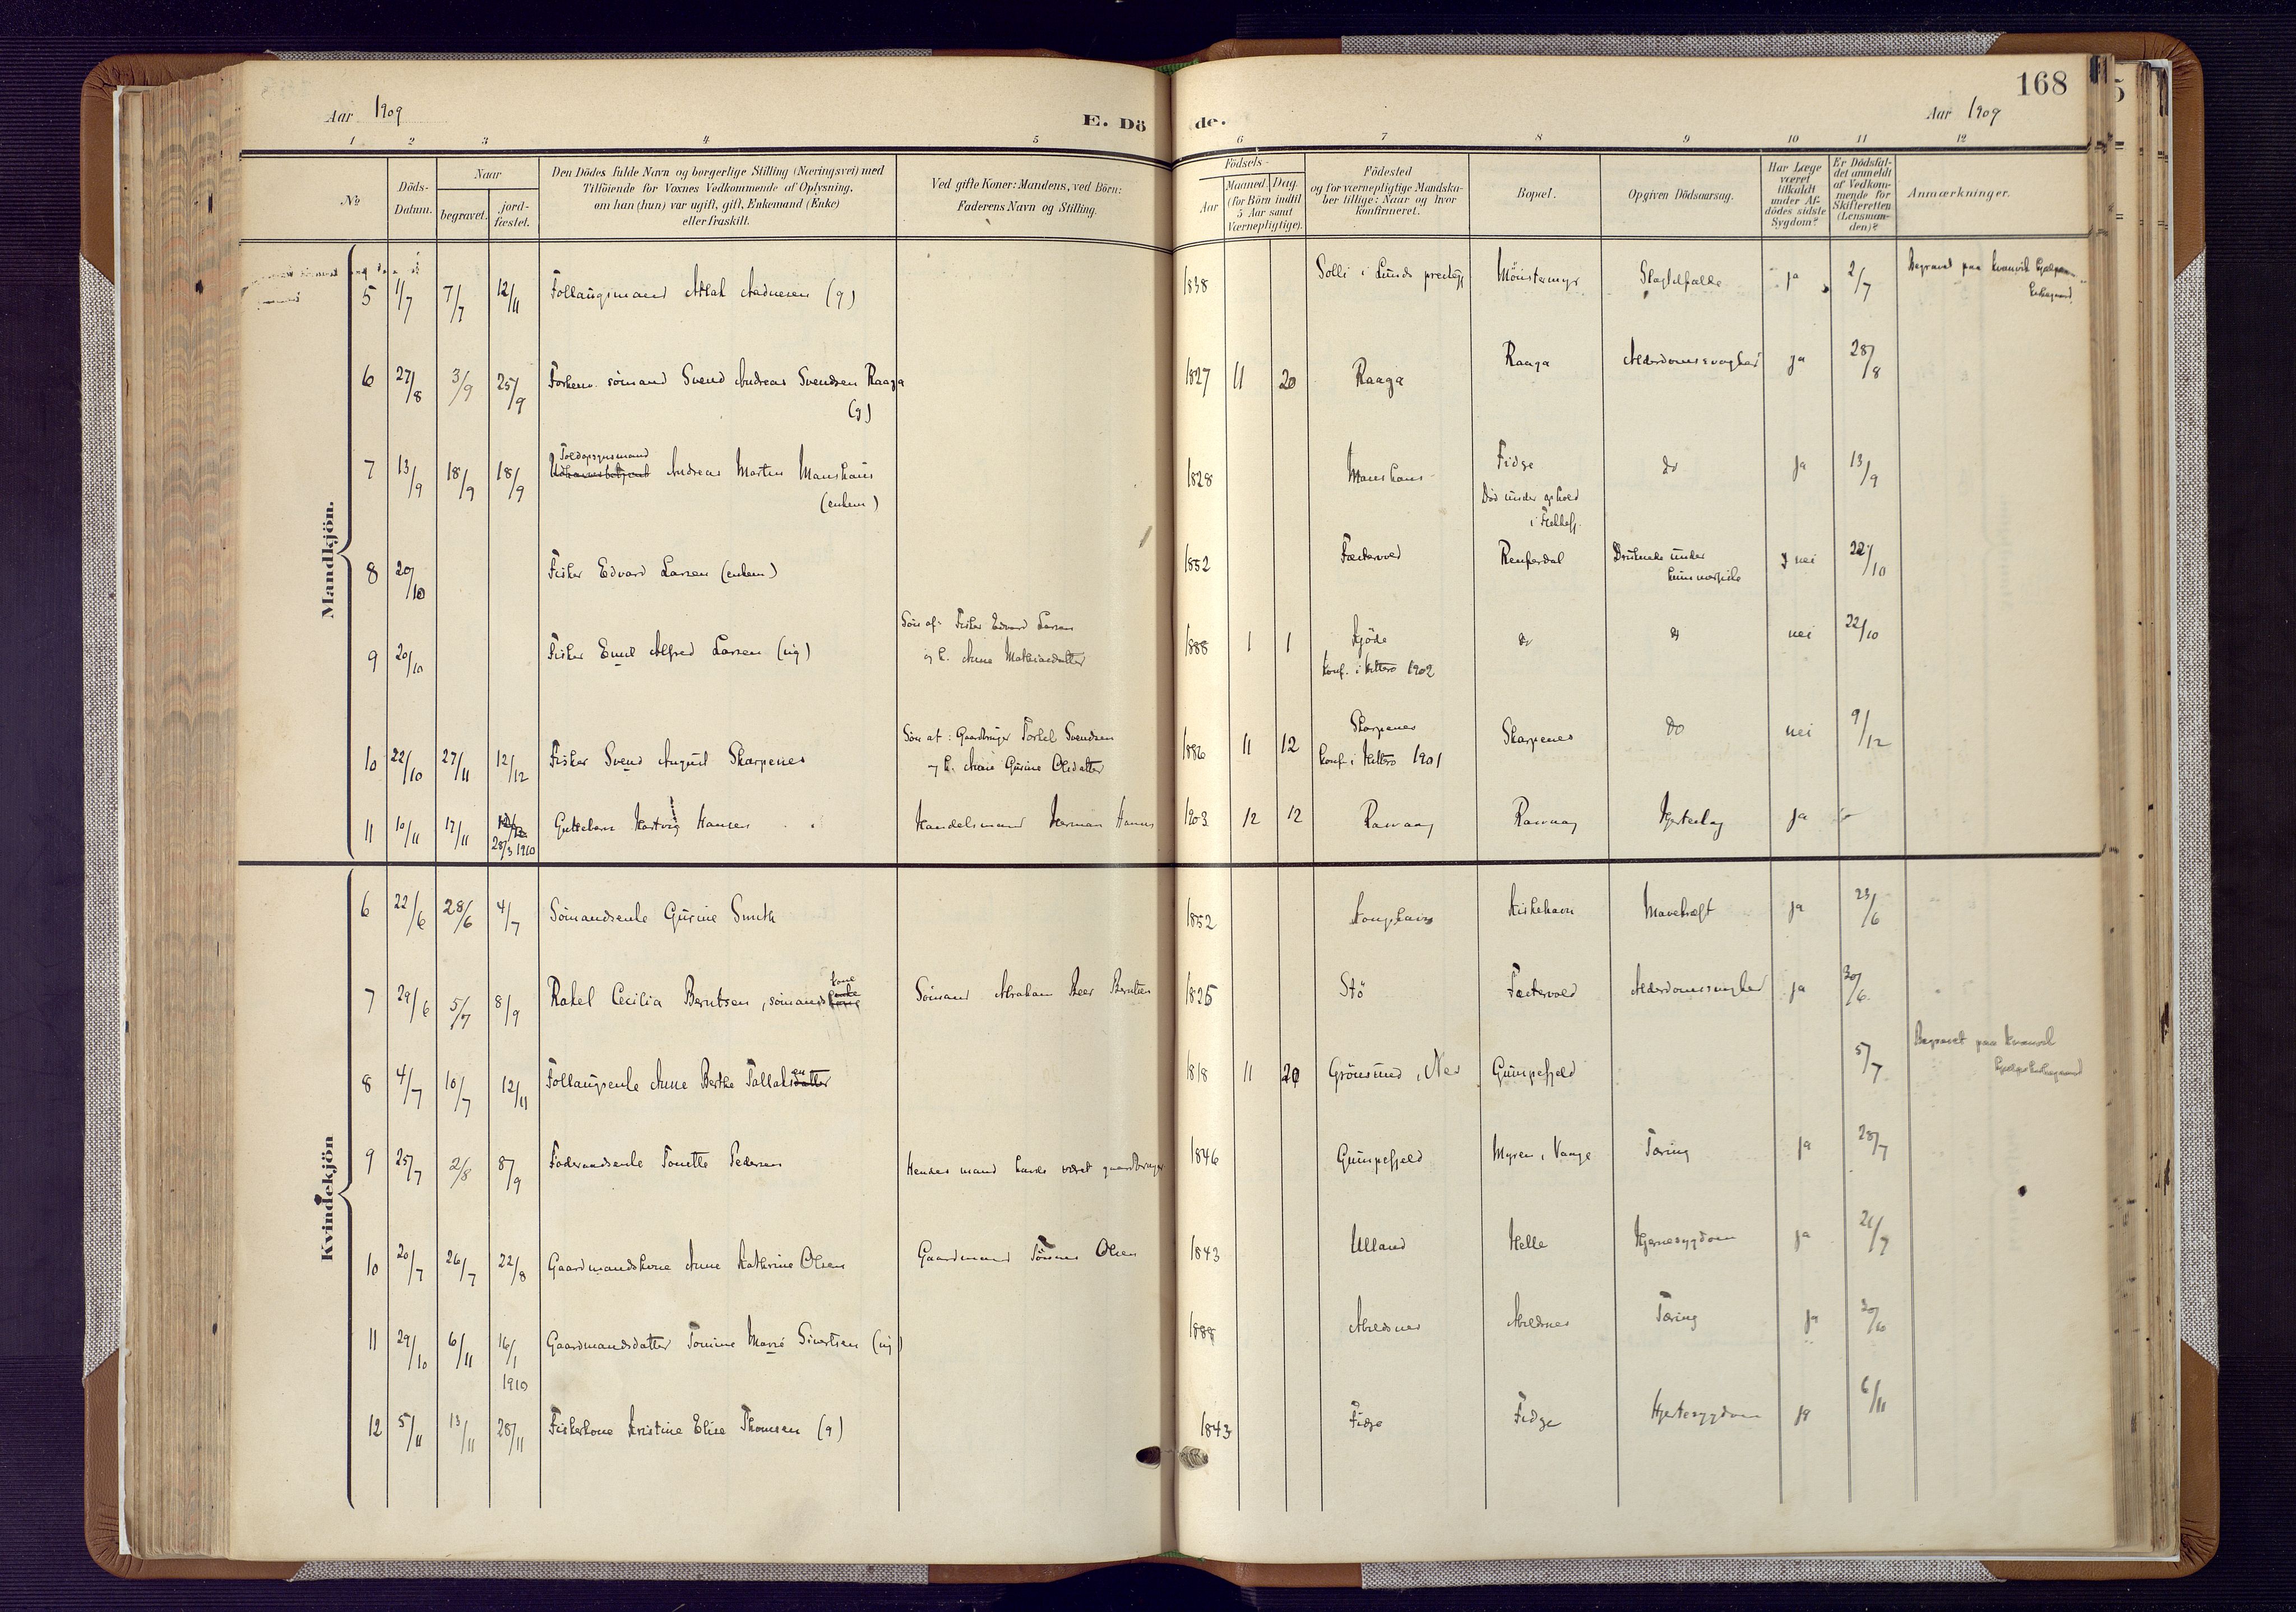 168
Aar 1909
E. Döde.
Aar 1909
1 2 3 4 5 6 7 8 9 10 11 12
No
Döds-Datum.
Naar
begravet.
jord-fæstet.
Den Dödes fulde Navn og borgerlige Stilling (Næringsvei) med
Tilföiende for Voxnes Vedkommende af Oplysning,
om han (hun) var ugift, gift, Enkemand (Enke)
eller fraskilt.
Ved gifte Koner: Mandens, ved Börn:
Faderens Navn og Stilling.
Födsels-
Aar
Maaned. Dag.
(for Börn indtil
5 Aar samt
Værnepligtige).
Födested
og for værnepligtige Mandska-
ber tillige: Naar og hvor
konfirmeret.
Bopæl.
Opgiven Dödsaarsag.
Har Læge
været
tilkaldt
under Af-
dödes sidste
Sygdom?
Er Dödsfal-
det anmeldt
af Vedkom-
mende for
Skifteretten
(Lensman-
den)?
Anmærkninger.
Mandkjön.
5 1/7 7/7 12/11 Follaugsmand Atlak Aadnesen (g) 1838 Solli i Lunds prestegj Mönstermyr Slagtilfælde ja 2/7 Begravet paa Kvanvik
6 27/8 3/9 25/9 Forhenv. sömand Svend Andreas Svendsen Raaga
(g) 1827 11 20 Raaga Raaga Alderdomssvaghed ja 28/8
Toldopsynsmand
7 13/9 18/9 18/9 Andreas Morten Manshaus
(enkem) 1828 Manshaus Fidge do ja 13/9
Död under ophold
i
8 20/10 Fisker Edvard Larsen (enkem) 1852 Fæstervold Renferdal Druknede under
nei 22/10
9 20/10 Fisker Emil Alfred Larsen (ug) Sön af: Fisker Edvard Larsen
og h. Anne Mathiasdatter 1888 1 1 konf. i Hitterö 1902 do do nei 22/10
10 22/10 27/11 12/12 Fisker Svend August Skarpenes Sön af: Gaardbruger Torkel Svendsen
og h. Anne Gurine Olsdatter 1886 11 12 Skarpenes
konf i Hitterö 1901 Skarpenes do nei 9/12
11 10/11 17/11 28/3 1910 Guttebarn Hartvig Hansen Handelsmand Herman Hansen 1903 12 12 Rasvaag Rasvaag ja
Kvindekjön
6 22/6 28/6 4/7 Sömandsenke Gurine Smith 1852 Kongshavn Kirkehavn Mavekræft ja 23/6
7 29/6 5/7 8/9 Rakel Cecilia Berntsen, sömands kone Sömand Abraham Beer Berntsen 1825 Stö Fæstervold Alderdomssvaghed ja 30/6
8 4/7 10/7 12/11 Follaugsenke Anne Berthe Tallaksen 1818 11 20 Grönsund i Nes Gumpefjeld 5/7 Begravet paa Kvanvik
9 25/7 2/8 8/9 Föderaadsenke Tonette Pedersen Hendes mand havde været gaardbruger 1846 Gumpefjeld Myren i Vange Tæring ja 28/7
10 20/7 26/7 22/8 Gaardmandskone Anne Kathrine Olsen Gaardmand Tönnes Olsen 1843 Ulland Helle Hjernesygdom ja 21/7
11 29/10 6/11 16/1 Gaardmandsdatter Tomine Marie Sivertsen (ug) 1888 Abelsnes Abelsnes Tæring ja
1910
12 5/11 13/11 28/11 Fiskerkone Kristine Elise Thomsen (g) 1843 Fidge Fidge Hjertesygdom ja 6/11